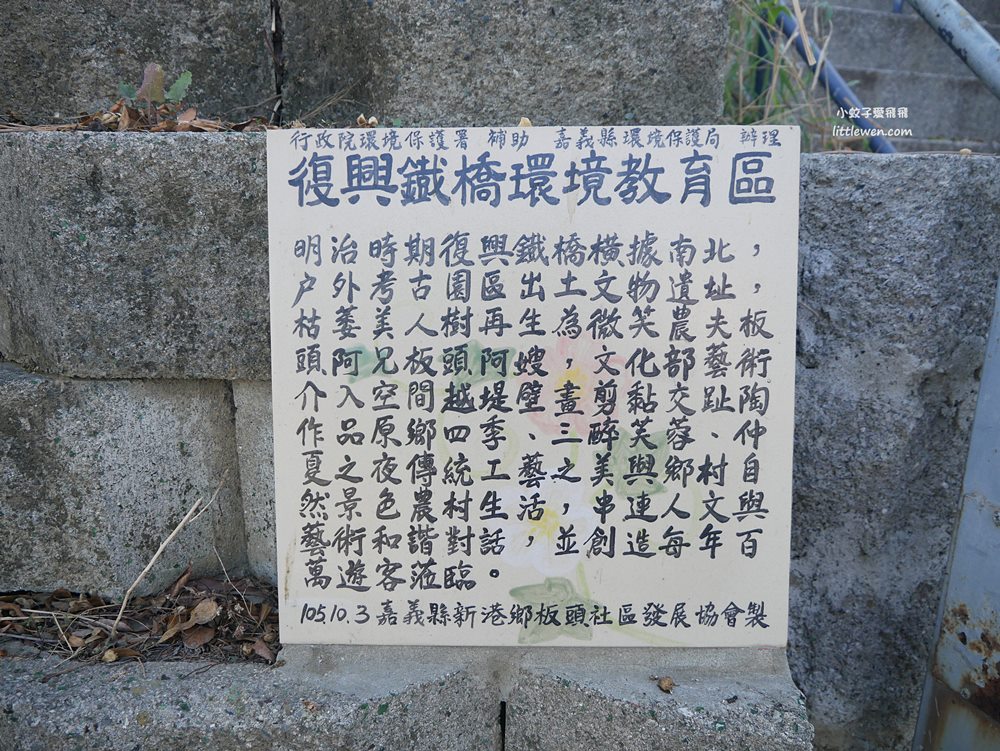 行政院環境保護署 補助 嘉義縣環境保護局 辦理
復興鐵橋環境教育區
明治時期復興鐵橋橫據南北，
戶外考古園區出土文物遺址，
枯萎美人樹再生為微笑農夫板
頭阿兄板頭阿嫂，文化部藝術
介入空間越堤壁畫剪黏交趾陶
作品原鄉四季、三醉芙蓉、仲
夏之夜傳統工藝之美與鄉村自
然景色農村生活，串連人文與
藝術和諧對話，並創造每年百
萬遊客蒞臨。
105.10.3嘉義縣新港鄉板頭社區發展協會製
小蚊子愛飛飛
littlewen.com